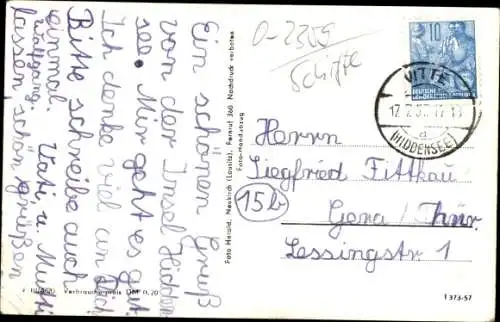 Ein schönen Gruß
von der Insel Hidden
see. Mir geht es gut
Ich denke viel an Dich
Bitte schreibe auch
einmal. Vati u. Mutti
lassen schön grüßen
Wolfgang.
O-2309
Schiffe
10
DEUTSCHE
VITTE
a
(HIDDENSEE)
Herrn
Siegfried Fittkau
15b
Gera / Thür.
Lessingstr. 1
Foto Herold, Neukirch (Lausitz), Fernruf 366 Nachdruck verboten
Foto-Handabzug
Verbraucherpreis DM 0,20
I 373-57